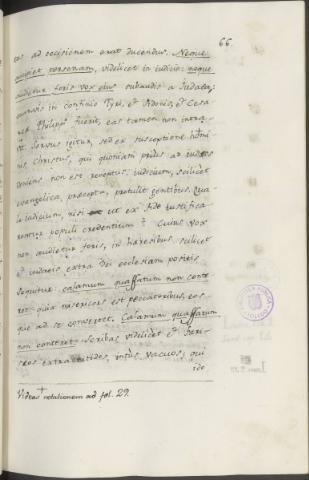 66.
ad occisionem erat ducendus. Neque
accipiet personam, videlicet in iudicio: neque
audietur foris vox eius subaudis a Iudaeis;
quamvis in confinio Tyri, et Sidonis, et Cesa-
reae Philippi fuerit, eas tamen non intra-
vit. Servus igitur, sed ex susceptione homi-
nis, Christus, qui quoniam prius ad iudaeos
veniens non est receptus: iudicium, scilicet
evangelica, praecepta, protulit gentibus. Qua-
re iudicium, nisi ut ex fide iustifica-
populi credentium? Cuius vox
non audietur foris, in haeresibus scilicet
et iudaeis extra Dei ecclesiam positis
sequitur. calamum quassatum non conte-
ret quia misericors est peccatoribus, eos
que ad se converteret. Calamum quassatum
non conteret. Scribas videlicet et Phari-
seos extra nitides, intus vacuos; qui
ide
Videas notationem ad fol. 29.